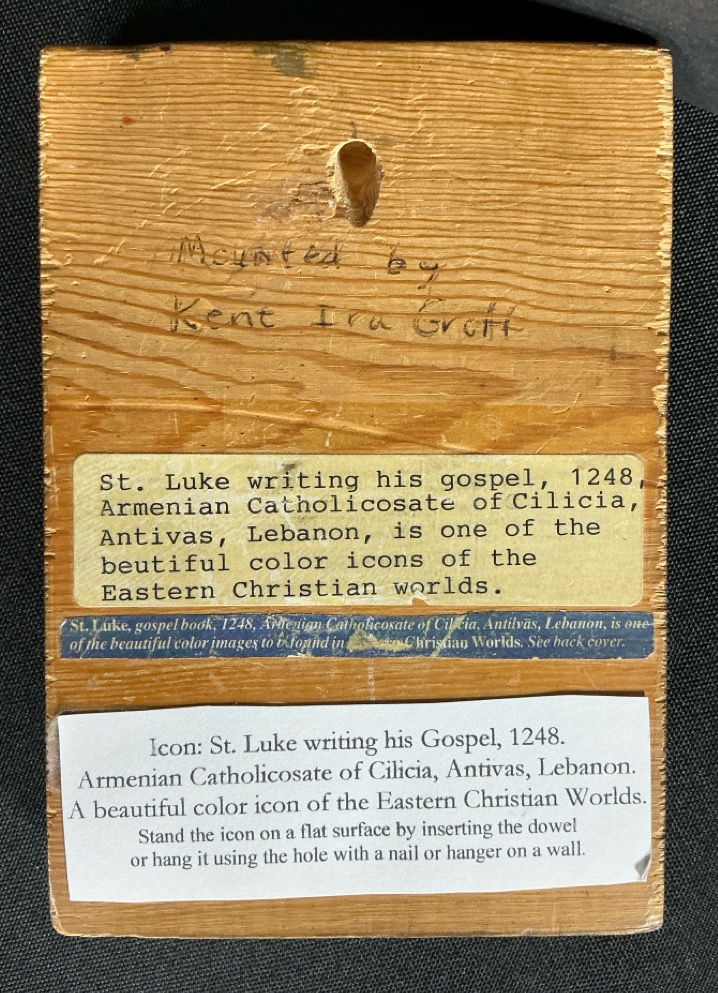 Mounted by
Kent Ira Groff
St. Luke writing his gospel, 1248,
Armenian Catholicosate of Cilicia,
Antivas, Lebanon, is one of the
beutiful color icons of the
Eastern Christian worlds.
St. Luke, gospel book, 1248, Armenian Catholicosate of Cilicia, Antilvas, Lebanon, is one
of the beautiful color images to be found in Christian Worlds. See back cover.
Icon: St. Luke writing his Gospel, 1248.
Armenian Catholicosate of Cilicia, Antivas, Lebanon.
A beautiful color icon of the Eastern Christian Worlds.
Stand the icon on a flat surface by inserting the dowel
or hang it using the hole with a nail or hanger on a wall.